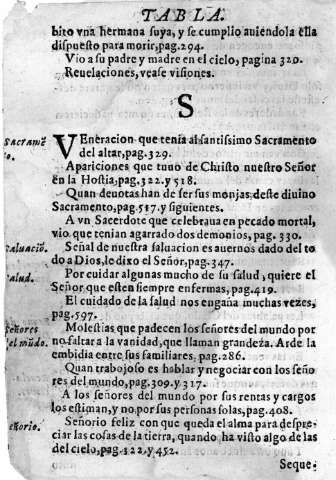 TABLA.
bito vna hermana suya, y se cumplio auiendola ella
dispuesto para morir, pag. 294.
Vio a su padre y madre en el cielo, pagina 320.
Reuelaciones, vease visiones.
S
VEneracion que tenia al santissimo Sacramento
del altar, pag. 329.
Apariciones que tuuo de Christo nuestro Señor
en la Hostia, pag. 322. y 518.
Quan deuotas han de ser sus monjas deste diuino
Sacramento, pag. 517. y siguientes.
A vn Sacerdote que celebraua en pecado mortal,
vio que tenian agarrado dos demonios, pag. 330.
Señal de nuestra saluacion es auernos dado del to
do a Dios, le dixo el Señor, pag. 347.
Por cuidar algunas mucho de su salud, quiere el
Señor que esten siempre enfermas, pag. 419.
El cuidado de la salud nos engaña muchas vezes,
pag. 597.
Molestias que padecen los señores del mundo por
no faltar a la vanidad, que llaman grandeza. Arde la
embidia entre sus familiares, pag. 286.
Quan trabajoso es hablar y negociar con los seño
res del mundo, pag. 309. y 317.
A los señores del mundo por sus rentas y cargos
los estiman, y no por sus personas solas, pag. 408.
Señorio feliz con que queda el alma para despre-
ciar las cosas de la tierra, quando ha visto algo de las
del cielo, pag. 122. y 452.
Seque-
Sacramē
o.
aluaciō.
alud.
eñores
el mūdo.
eñorio.